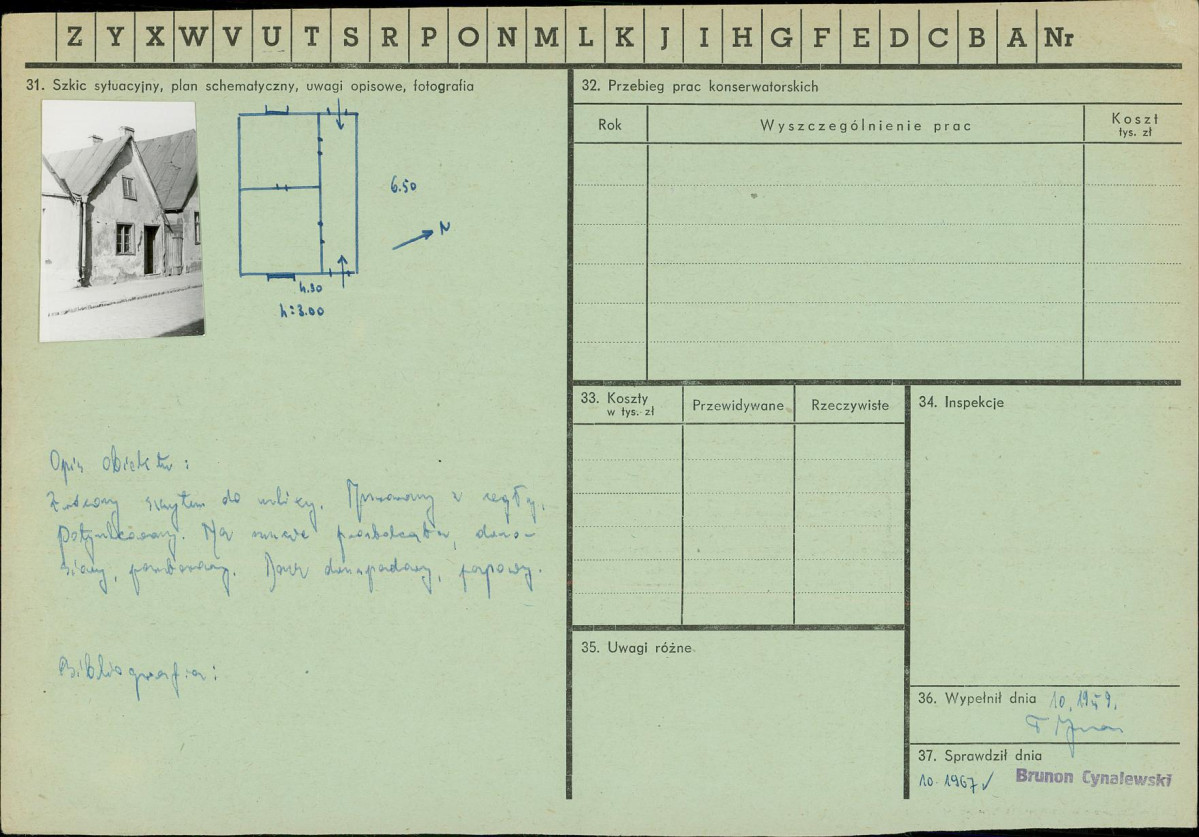 Z Y X W V U T S R P O N M L K J I H G F E D C B A Nr
31. Szkic sytuacyjny, plan schematyczny, uwagi opisowe, fotografia
6.50
N
4.30
h=3.00
Opis obiektu:
szczytem do ulicy. Murowany z cegły,
Potynkowany. Na
Dach dwuspadowy, papowy.
Bibliografia:
32. Przebieg prac konserwatorskich
Rok
Wyszczególnienie prac
Koszt
tys. zł
33. Koszty
w tys. zł
Przewidywane
Rzeczywiste
34. Inspekcje
35. Uwagi różne
36. Wypełnił dnia 10. 1959.
37. Sprawdził dnia
10. 1967 Brunon Cynalewski